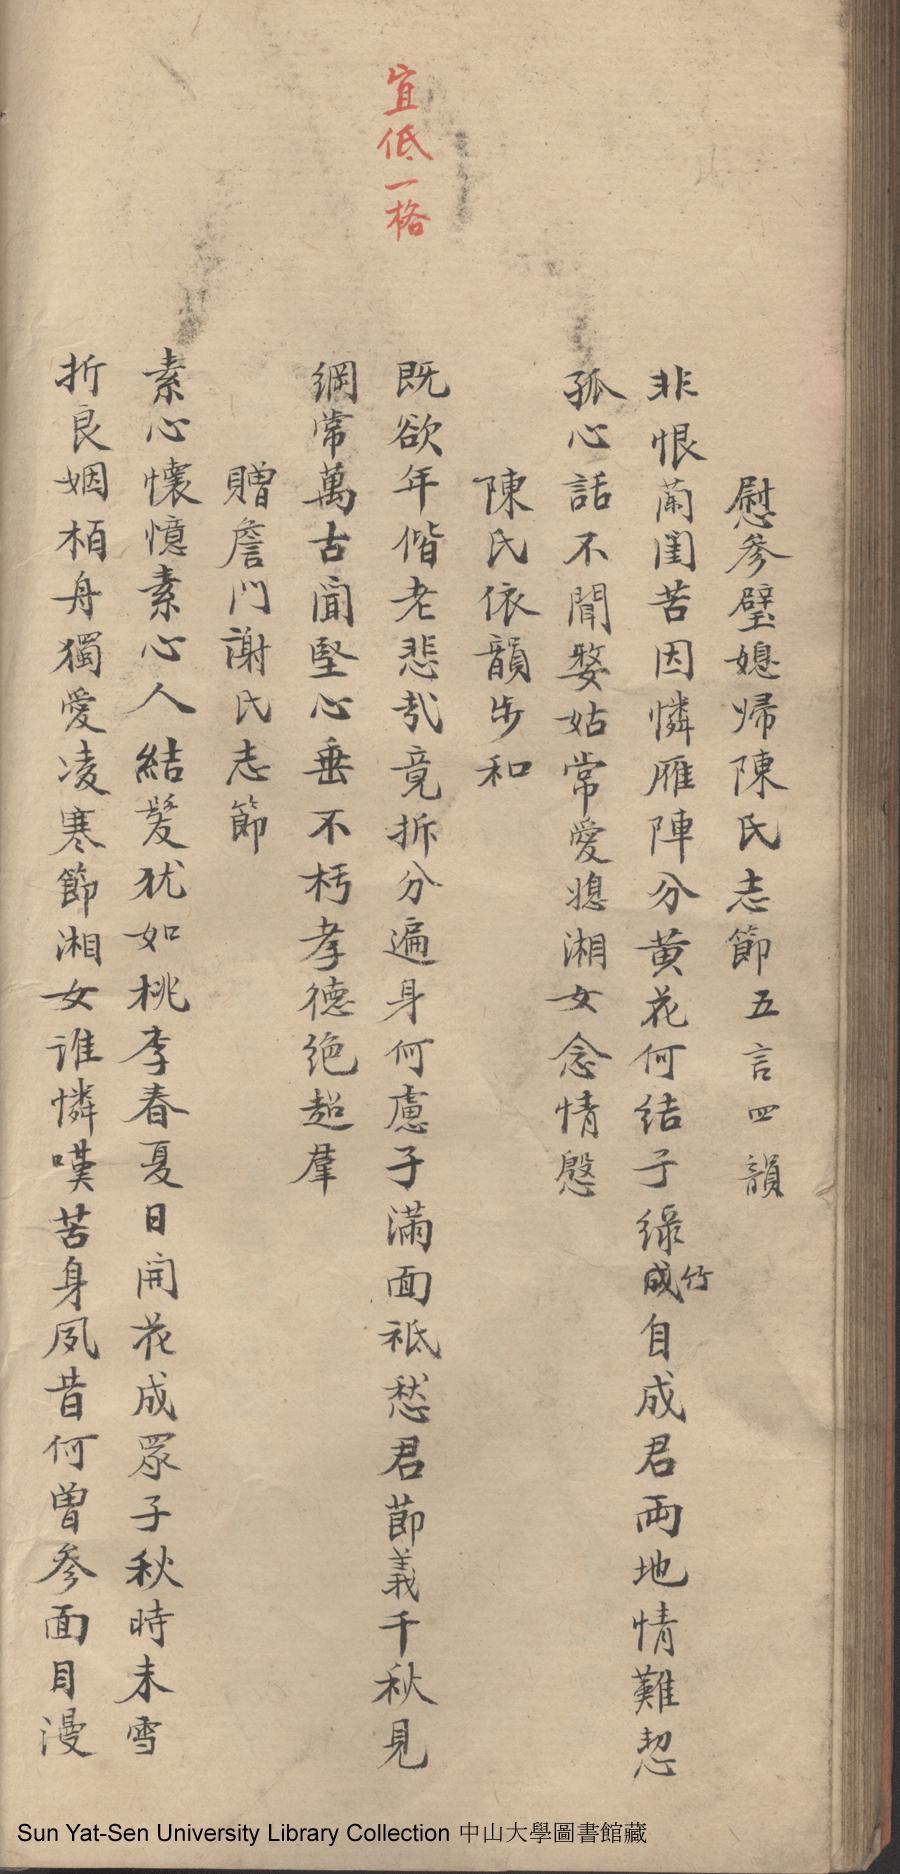 慰參璧媳歸陳氏志節五言四韻
非恨蘭閨苦因憐雁陣分黄花何結子綠成竹自成君兩地情難恝
孤心話不聞婺姑常愛媳湘女念情慇
陳氏依韻步和
宜低一格
既欲年偕老悲哉竟拆分遍身何慮子滿面祗愁君節義千秋見
綱常萬古聞堅心垂不朽孝德絶超羣
贈詹門謝氏志節
素心懷憶素心人結髮犹如桃李春夏日開花成眾子秋時未雪
折良姻栢舟獨愛凌寒節湘女誰憐嘆苦身夙昔何曾參面目漫
Sun Yat-Sen University Library Collection 中山大學圖書館藏